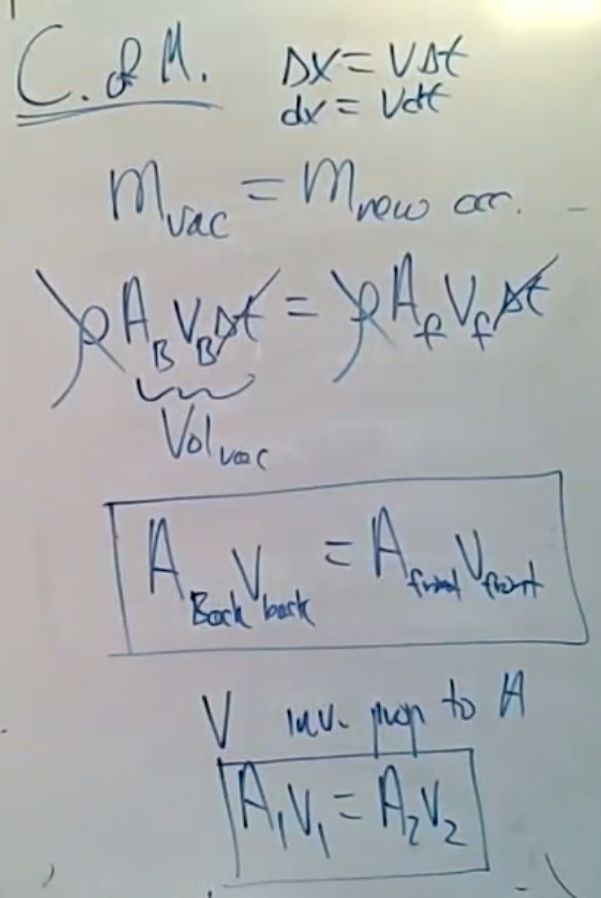 C. of M.
Δx = VΔt
dx = Vdt
m_vac = m_new occ.
ρA_B V_B Δt = ρA_f V_f Δt
Vol_vac
A_Back V_back = A_front V_front
V inv. prop to A
A₁V₁ = A₂V₂